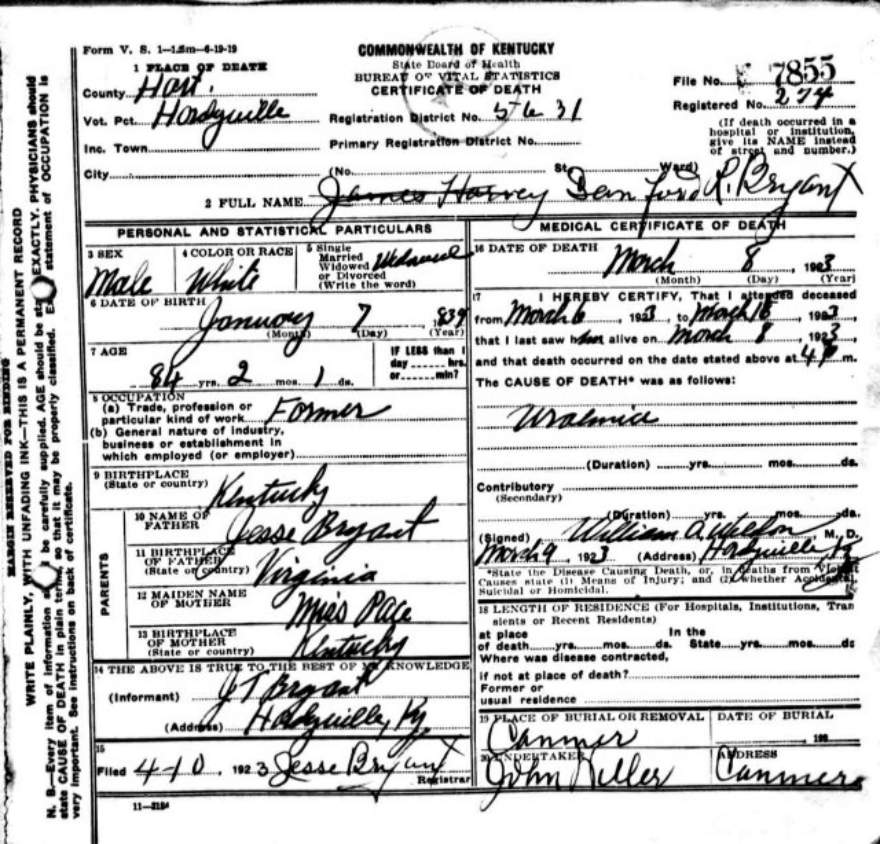 Form V. S. 1—1.5m—6-19-19
COMMONWEALTH OF KENTUCKY
State Board of Health
BUREAU OF VITAL STATISTICS
CERTIFICATE OF DEATH
File No. 7855
Registered No. 274
(If death occurred in a
hospital or institution,
give its NAME instead
of street and number.)
1 PLACE OF DEATH
County Hart.
Vot. Pct. Hardyville
Registration District No. 5631
Inc. Town
Primary Registration District No.
City
(No. St. Ward)
2 FULL NAME James Harvey Danford R. Bryant
PERSONAL AND STATISTICAL PARTICULARS
3 SEX
Male
4 COLOR OR RACE
White
5 Single
Married
Widowed
or Divorced
(Write the word)
Widowed
6 DATE OF BIRTH
January 7 1839
(Month) (Day) (Year)
7 AGE
84 yrs. 2 mos. 1 ds.
IF LESS than 1
day hrs.
or min?
8 OCCUPATION
(a) Trade, profession or
particular kind of work Farmer
(b) General nature of industry,
business or establishment in
which employed (or employer)
9 BIRTHPLACE
(State or country)
Kentucky
PARENTS
10 NAME OF
FATHER
Jesse Bryant
11 BIRTHPLACE
OF FATHER
(State or country)
Virginia
12 MAIDEN NAME
OF MOTHER
Miss Pace
13 BIRTHPLACE
OF MOTHER
(State or country)
Kentucky
14 THE ABOVE IS TRUE TO THE BEST OF MY KNOWLEDGE
(Informant) J T Bryant
(Address) Hardyville, Ky
15
Filed 4-10, 1923 Jesse Bryant
Registrar
11—3184
MEDICAL CERTIFICATE OF DEATH
16 DATE OF DEATH
March 8, 1923
(Month) (Day) (Year)
17 I HEREBY CERTIFY, That I attended deceased
from March 6, 1923, to March 18, 1923,
that I last saw him alive on March 8, 1923,
and that death occurred on the date stated above at 4 P m.
The CAUSE OF DEATH* was as follows:
Uraemia
(Duration) yrs. mos. ds.
Contributory
(Secondary)
(Duration) yrs. mos. ds.
(Signed) William A. Weldon, M. D.
March 9, 1923 (Address) Hardyville, Ky
*State the Disease Causing Death, or, in deaths from Violent
Causes state (1) Means of Injury; and (2) whether Accidental,
Suicidal or Homicidal.
18 LENGTH OF RESIDENCE (For Hospitals, Institutions, Tran
sients or Recent Residents)
at place In the
of death yrs. mos. ds. State yrs. mos. ds
Where was disease contracted,
if not at place of death?
Former or
usual residence
19 PLACE OF BURIAL OR REMOVAL
Canmer
DATE OF BURIAL
, 192
20 UNDERTAKER
John
ADDRESS
Canmer
MARGIN RESERVED FOR BINDING
WRITE PLAINLY, WITH UNFADING INK—THIS IS A PERMANENT RECORD
N. B.—Every item of information should be carefully supplied. AGE should be stated EXACTLY. PHYSICIANS should
state CAUSE OF DEATH in plain terms, so that it may be properly classified. Exact statement of OCCUPATION is
very important. See instructions on back of certificate.